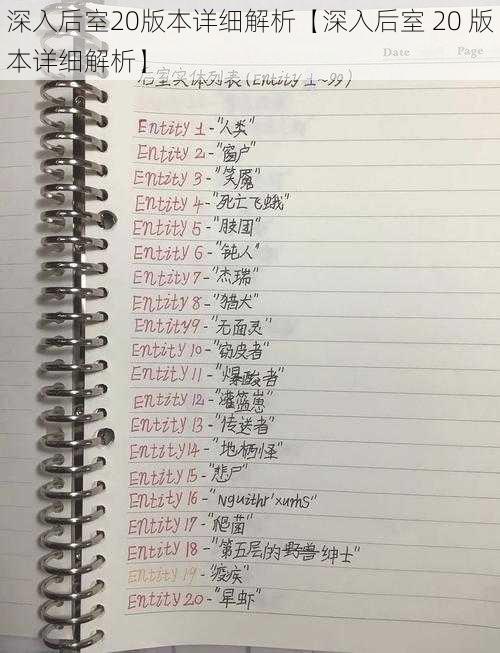 深入后室20版本详细解析【深入后室 20 版
本详细解析】
Date Page
后室实体列表(Entity 1~99)
Entity 1-"人类"
Entity 2-"窗户"
Entity 3-"笑魇"
Entity 4-"死亡飞蛾"
Entity 5-"肢团"
Entity 6-"钝人"
Entity 7-"杰瑞"
Entity 8-"猎犬"
Entity 9-"无面灵"
Entity 10-"窃皮者"
Entity 11-"爆酸者"
Entity 12-"灌篮崽"
Entity 13-"传送者"
Entity 14-"地栖怪"
Entity 15-"悲尸"
Entity 16-"Nguithr'xurhs"
Entity 17-"爬菌"
Entity 18-"第五层的野兽绅士"
Entity 19-"疫疾"
Entity 20-"旱虾"